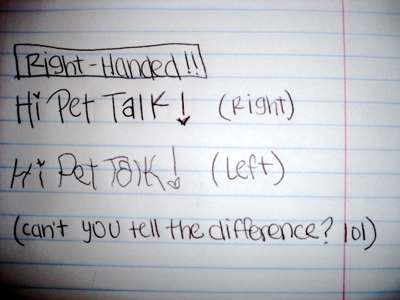 Right-Handed!!
Hi Pet Talk! (Right)
Hi Pet Talk! (Left)
(can't you tell the difference? lol)